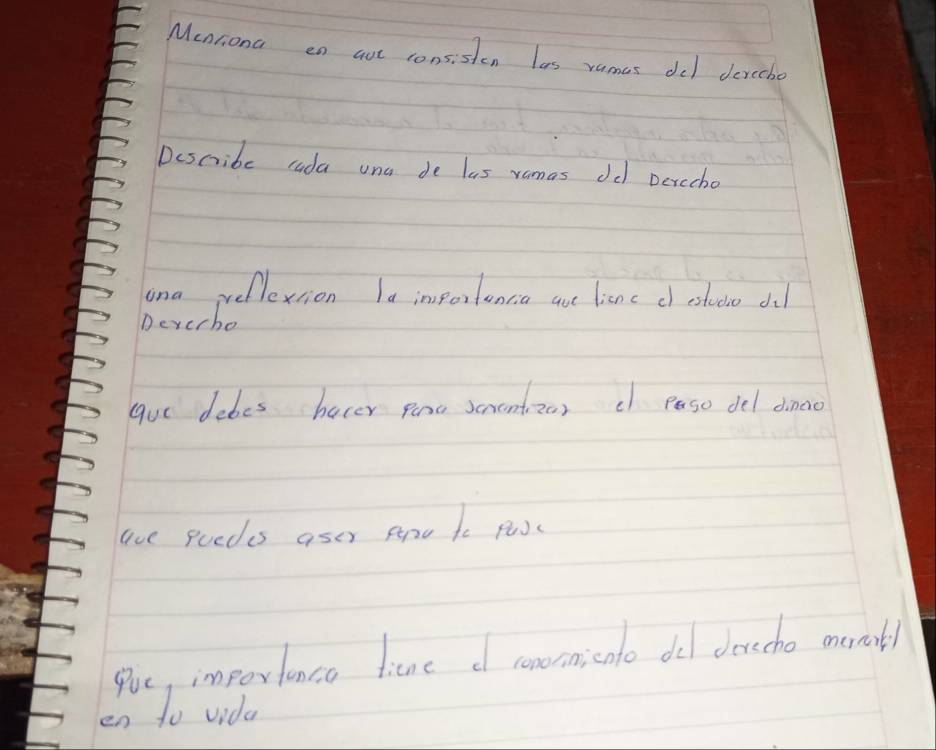 Menciona en que consisten las ramas del derecho
Describe cada una de las ramas del Derecho
una reflexcion la importancia que tiene el estudio del
Derecho
que debes hacer para garantizar el pago del dinero
que puedes aser para te page
que, importancia tiene el conocimiento del derecho mercantil
en tu vida